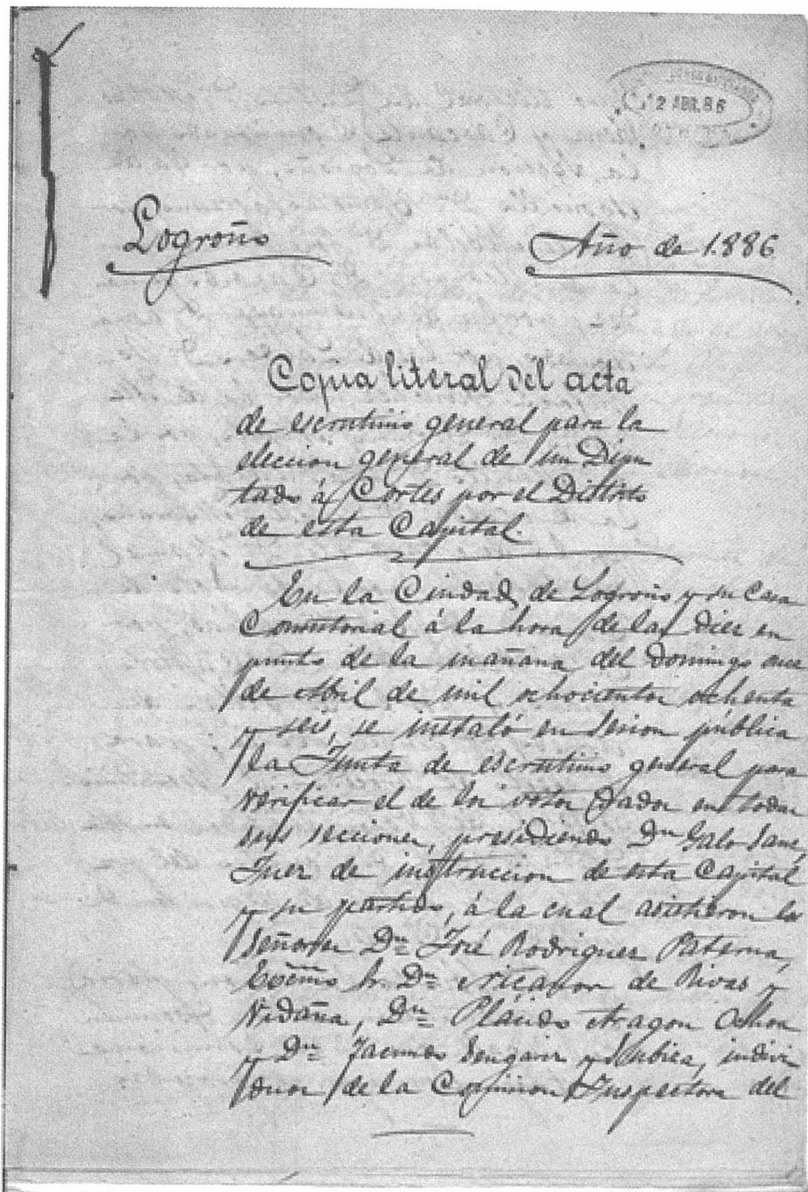 2 ABR. 86
Logroño
Año de 1.886
Copia literal del acta
de escrutinio general para la
eleccion general de un Dipu
tado á Cortes por el Distrito
de esta Capital.
En la Ciudad de Logroño y su Casa
Consistorial á la hora de las diez en
punto de la mañana del Domingo once
de Abril de mil ochocientos ochenta
y seis, se instaló en sesion pública
la Junta de escrutinio general para
verificar el de los votos dados en todas
sus secciones, presidiendo Dn Galo Sanz,
Juez de instruccion de esta Capital
y su partido, á la cual asistieron los
Señores Dn José Rodriguez Paterna,
Excmo Sr. Dn Nicanor de Rivas y
Dn Plácido Aragon
y Dn Facundo Sengariz y indivi
duos de la Comision Inspectora del